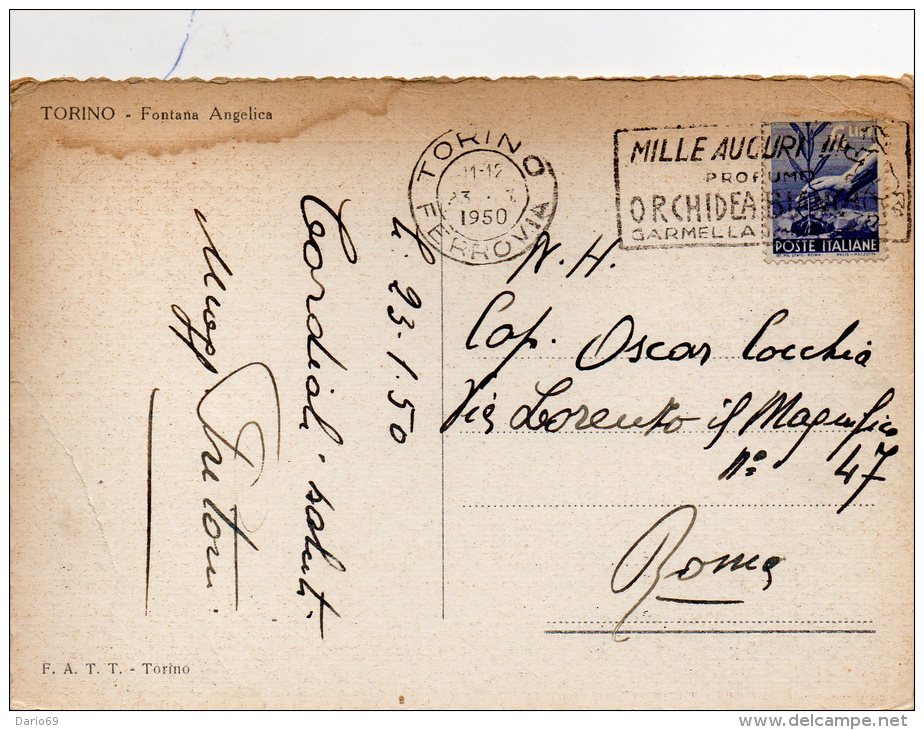 TORINO - Fontana Angelica
TORINO
11-12
1950
FERROVIA
MILLE AUGURI !!!
PROFUMO
ORCHIDEA
GARMELLA
POSTE ITALIANE
lì 23.1.50
Cordiali saluti.
N. H.
Cap. Oscar Cocchia
Via Lorenzo il Magnifico
n° 47
Roma
F. A. T. T. - Torino
Dario69
www.delcampe.net